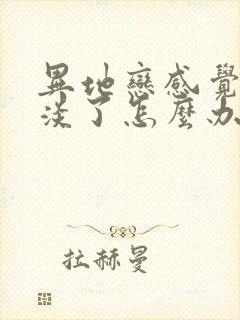 異地戀感覺
淡了怎麼办
拉赫曼